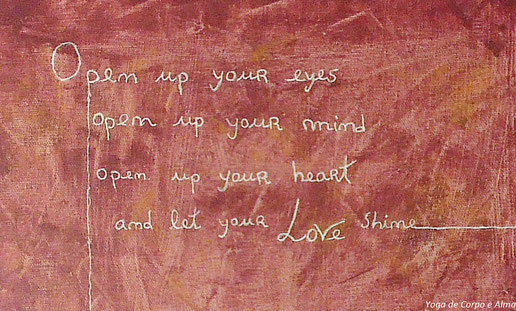 Open up your eyes
open up your mind
open up your heart
and let your Love shine
Yoga de Corpo e Alma